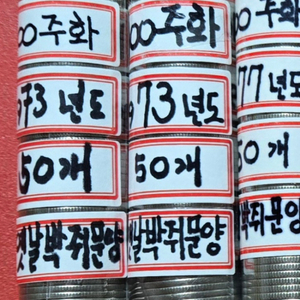 00주화 00주화 00주화
973년도 973년도 77년도
50개 50개 50개
옛날박쥐문양 옛날박쥐문양 박쥐문양